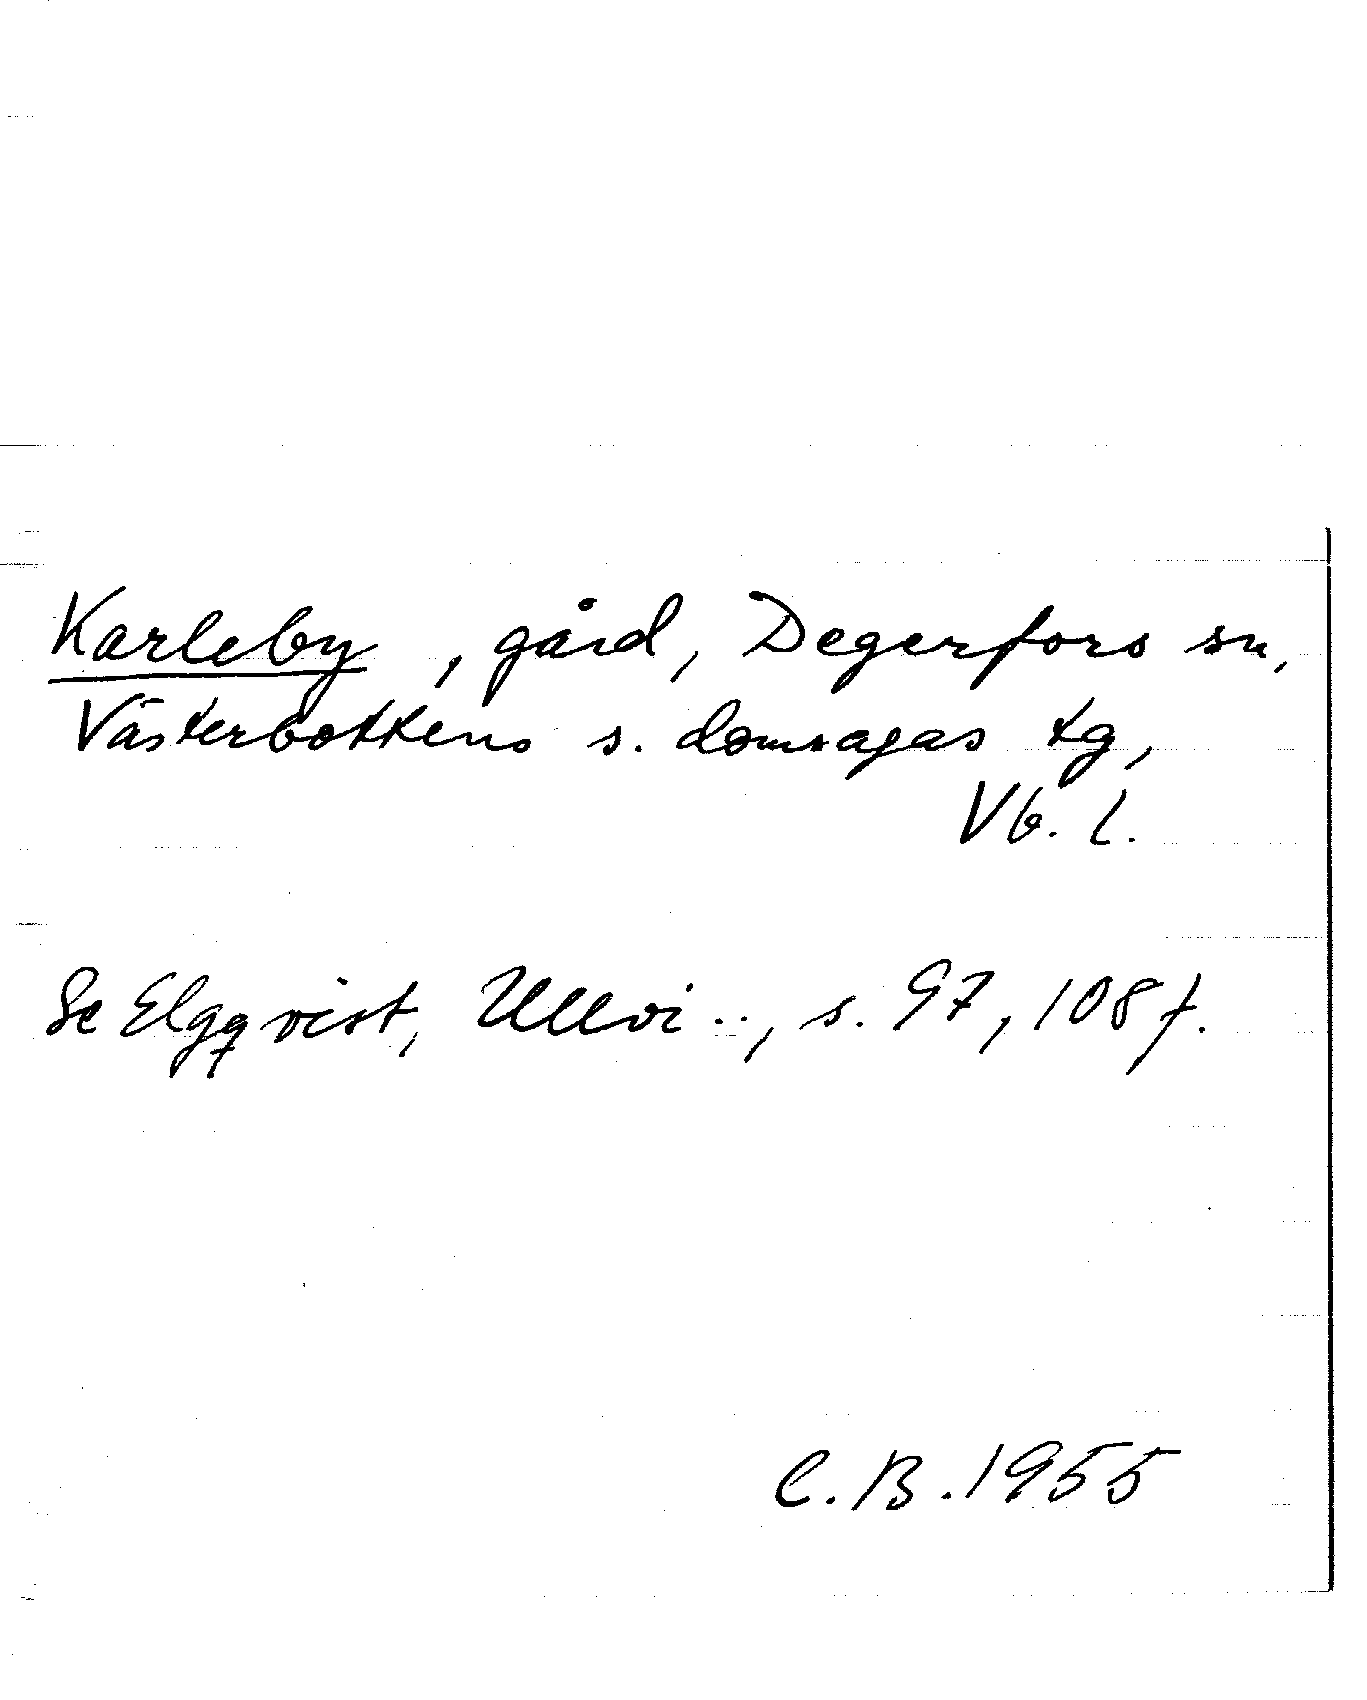 Karleby, gård, Degerfors sn,
Västerbottens s. domsagas tg,
Vb. l.
Se Elgqvist, Ullvi.., s. 97, 108 f.
C.B. 1955